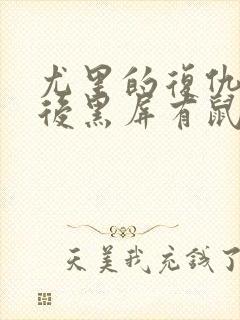 尤里的復仇
後黑屏有鼠
天美我充錢了